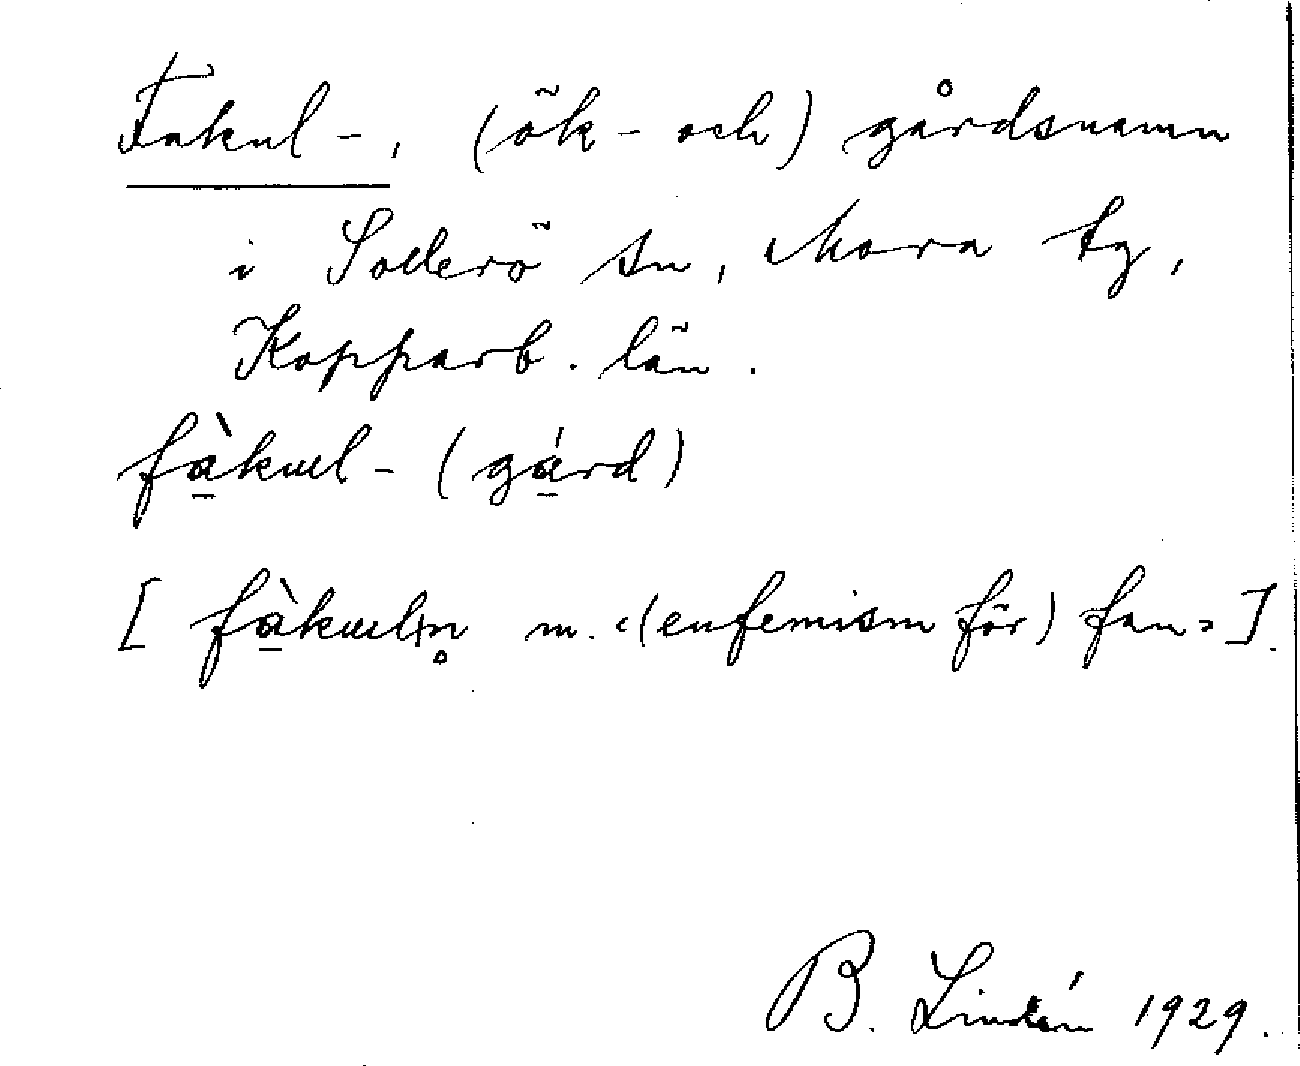 Fakul-, (ök- och) gårdsnamn
i Sollerö sn, Mora tg,
Kopparb. län.
fà̱kɯl- (gá̱rd)
[ fà̱kɯln̥ m. ‹(eufemism för) fan› ].
B. Lindén 1929.